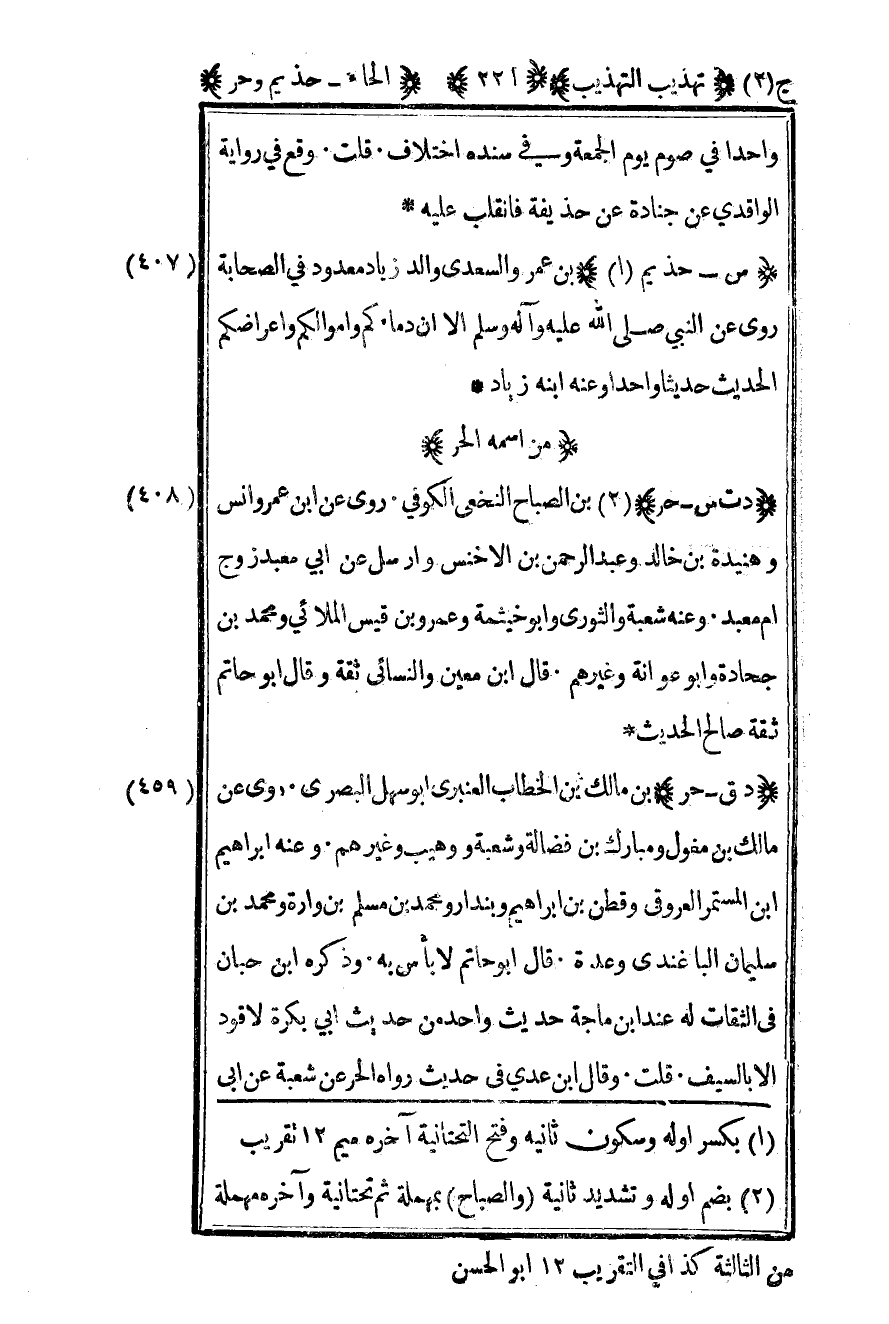 ج(٢) ﴿ تهذيب التهذيب ﴾ ﴿ ٢٢١ ﴾ ﴿ الحاء ـ حذيم وحر ﴾
واحدا في صوم يوم الجمعة وفي سنده اختلاف ٠ قلت ٠ وقع في رواية
الواقدي عن جنادة عن حذيفة فانقلب عليه *
﴿ س ـ حذيم (١) ﴾ بن عمر والسعدى والد زياد معدود في الصحابة (٤٠٧)
روى عن النبي صلى الله عليه وآله وسلم الا ان دماءكم واموالكم واعراضكم
الحديث حديثا واحدا وعنه ابنه زياد *
﴿ من اسمه الحر ﴾
﴿ دت س ـ حر ﴾ (٢) بن الصباح النخعى الكوفي ٠ روى عن ابن عمر وانس (٤٠٨)
وهنيدة بن خالد وعبد الرحمن بن الاخنس وارسل عن ابي معبد زوج
ام معبد ٠ وعنه شعبة والثورى وابو خيثمة وعمرو بن قيس الملائي ومحمد بن
جحادة وابو عوانة وغيرهم ٠ قال ابن معين والنسائى ثقة وقال ابو حاتم
ثقة صالح الحديث *
﴿ د ق ـ حر ﴾ بن مالك بن الخطاب العنبرى ابو سهل البصرى ٠ روى عن (٤٥٩)
مالك بن مغول ومبارك بن فضالة وشعبة ووهيب وغيرهم ٠ وعنه ابراهيم
ابن المستمر العروقى وقطن بن ابراهيم وبندار ومحمد بن مسلم بن وارة ومحمد بن
سليمان الباغندى وعدة ٠ قال ابو حاتم لا بأس به ٠ وذكره ابن حبان
فى الثقات له عند ابن ماجة حديث واحد من حديث ابي بكرة لا قود
الا بالسيف ٠ قلت ٠ وقال ابن عدي فى حديث رواه الحر عن شعبة عن ابى
(١) بكسر اوله وسكون ثانيه وفتح التحتانية آخره ميم ١٢ تقريب
(٢) بضم اوله وتشديد ثانية (والصباح) بمهملة ثم تحتانية وآخره مهملة
من الثالثة كذا في التقريب ١٢ ابو الحسن